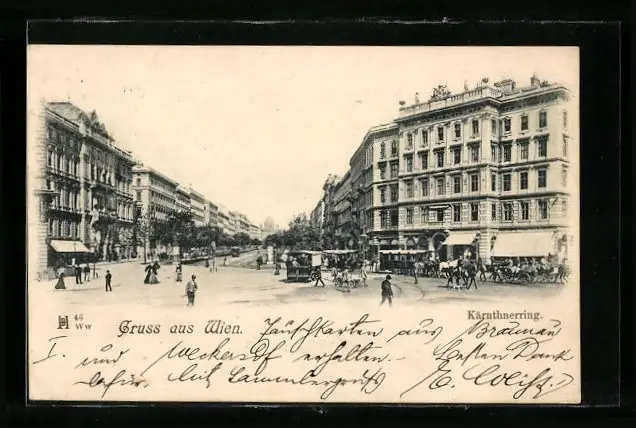 Kärnthnerring.
46
Ww
Gruss aus Wien. Tauschkarten aus Braunau
I. und Weckersdorf erhalten. Besten Dank
dafür. Mit Sammlergruß